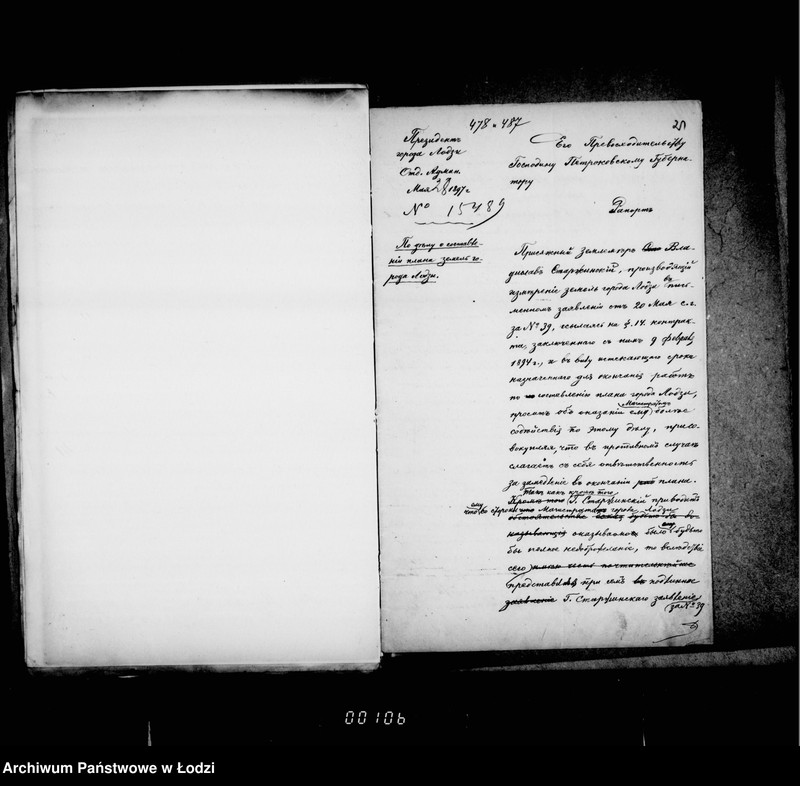 478 и 487
25
Президентъ
города Лодзи
Отд. Админ.
Мая 28 1897 г.
№ 15489
По дѣлу о составле-
ніи плана земель го-
рода Лодзи.
Его Превосходительству
Господину Петроковскому Губерна-
тору
Рапортъ
Присяжный Землемѣръ Вла-
диславъ Старжинскій, производящій
измѣреніе земель города Лодзи въ пись-
менномъ заявленіи отъ 20 Мая с.г.
за № 39, ссылаясь на §. 14. контрак-
та, заключеннаго съ нимъ 9 Февраля
1894 г., и въ виду истекающаго срока
назначеннаго для окончанія работъ
по составленію плана города Лодзи,
проситъ объ оказаніи ему Магистратомъ болѣе
содѣйствія по этому дѣлу, присо-
вокупляя, что въ противномъ случаѣ
слагаетъ съ себя отвѣтственность
за замедленіе въ окончаніи плана.
Такъ какъ кромѣ того
Г. Старжинскій приводитъ
что со стороны Магистрата города Лодзи
оказываемо было ему будто
бы полное недоброжеланіе, то вслѣдствіе
сего имѣю честь почтительнѣйше
представляя при семъ подлинное
заявленіе Г. Старжинскаго заявленіе
за № 39
00106
Archiwum Państwowe w Łodzi